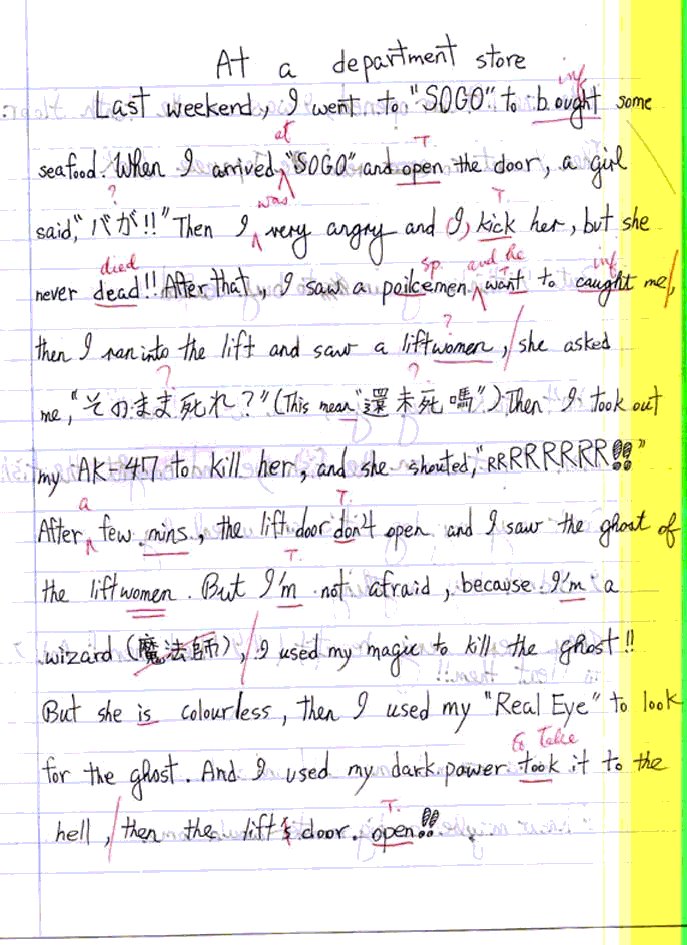 At a department store
inf
Last weekend, I went to "SOGO" to bought some
at T
seafood. When I arrived "SOGO" and open the door, a girl
? was T
said, "バが!!" Then I very angry and I, kick her, but she
died sp. and he T inf
never dead!! After that, I saw a poilcemen want to caught me,
?
then I ran into the lift and saw a liftwomen, she asked
? ?
me, "そのまま死れ?" (This mean "還未死嗎".) Then I took out
my AK-47 to kill her, and she shouted, "RRRRRRRR!!"
a T.
After few mins, the lift door don't open and I saw the ghost of
T.
the liftwomen. But I'm not afraid, because I'm a
wizard (魔法師), I used my magic to kill the ghost!!
But she is colourless, then I used my "Real Eye" to look
to take
for the ghost. And I used my dark power took it to the
T.
hell, then the lift's door. open!!.